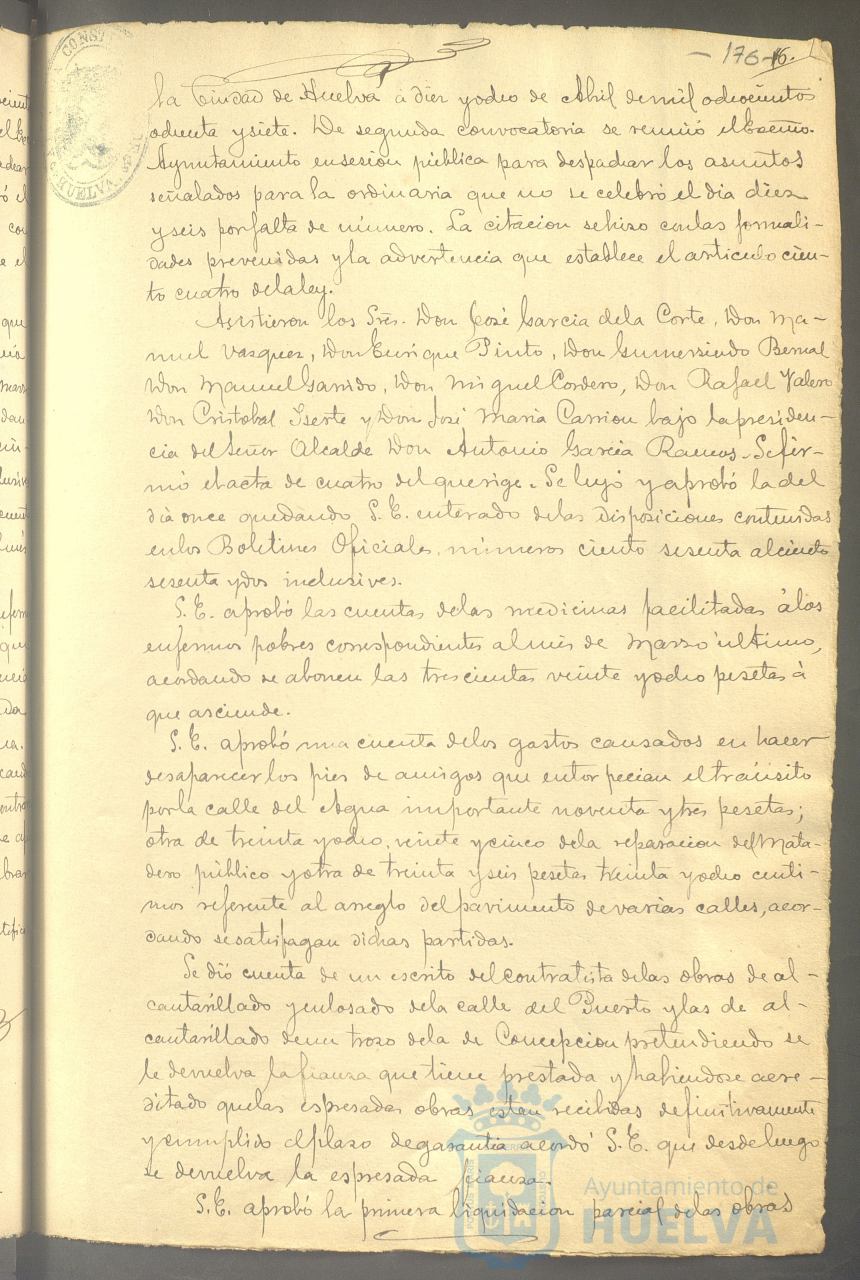 - 176-16.
CONST
HUELVA
la Ciudad de Huelva á diez y ocho de Abril de mil ochocientos
ochenta y siete. De segunda convocatoria se reunió el Excmo.
Ayuntamiento en sesión pública para despachar los asuntos
señalados para la ordinaria que no se celebró el dia diez
y seis por falta de número. La citacion se hizo con las formali-
dades prevenidas y la advertencia que establece el articulo cien-
to cuatro de la ley.
Asistieron los Sres. Don José Garcia de la Corte, Don Ma-
nuel Vazquez, Don Enrique Pinto, Don Gumersindo Bernal
Don Manuel Garrido, Don Miguel Cordero, Don Rafael Valero
Don Cristobal Iserte y Don José Maria Carrion bajo la presiden-
cia del Señor Alcalde Don Antonio Garcia Ramos. Se fir-
mó el acta de cuatro del que rige. Se leyó y aprobó la del
dia once quedando S. E. enterado de las disposiciones contenidas
en los Boletines Oficiales, números ciento sesenta al ciento
sesenta y dos inclusives.
S. E. aprobó las cuentas de las medicinas facilitadas á los
enfermos pobres correspondientes al mes de Marzo último,
acordando se abonen las trescientas veinte y ocho pesetas á
que asciende.
S. E. aprobó una cuenta de los gastos causados en hacer
desaparecer los pies de amigos que entorpecian el tránsito
por la calle del Agua importante noventa y tres pesetas;
otra de treinta y ocho, veinte y cinco de la reparacion del Mata-
dero público y otra de treinta y seis pesetas treinta y ocho centi-
mos referente al arreglo del pavimento de varias calles, acor-
dando se satisfagan dichas partidas.
Se dió cuenta de un escrito del contratista de las obras de al-
cantarillado y enlosado de la calle del Puerto y las de al-
cantarillado de un trozo de la de Concepcion pretendiendo se
le devuelva la fianza que tiene prestada y habiendose acre-
ditado que las espresadas obras esten recibidas definitivamente
y cumplido el plazo de garantia acordó S. E. que desde luego
se devuelva la espresada fianza.
S. E. aprobó la primera liquidacion parcial de las obras
Ayuntamiento de
HUELVA